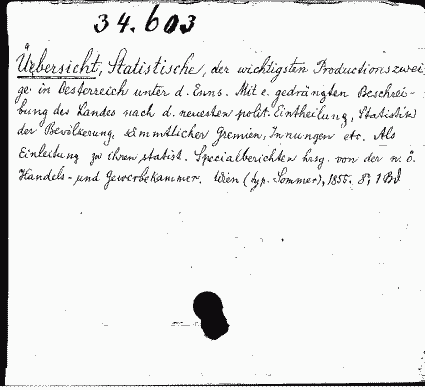 34.603
Übersicht, Statistische, der wichtigsten Productionszwei-
ge in Oesterreich unter d. Enns. Mit e. gedrängten Beschrei-
bung des Landes nach d. neuesten polit. Eintheilung, Statistik
der Bevölkerung, sämmtlicher Gremien, Innungen etc. Als
Einleitung zu ihren statist. Specialberichten hrsg. von der n. ö.
Handels- und Gewerbekammer. Wien (typ. Sommer), 1855. 8°, 1 Bd